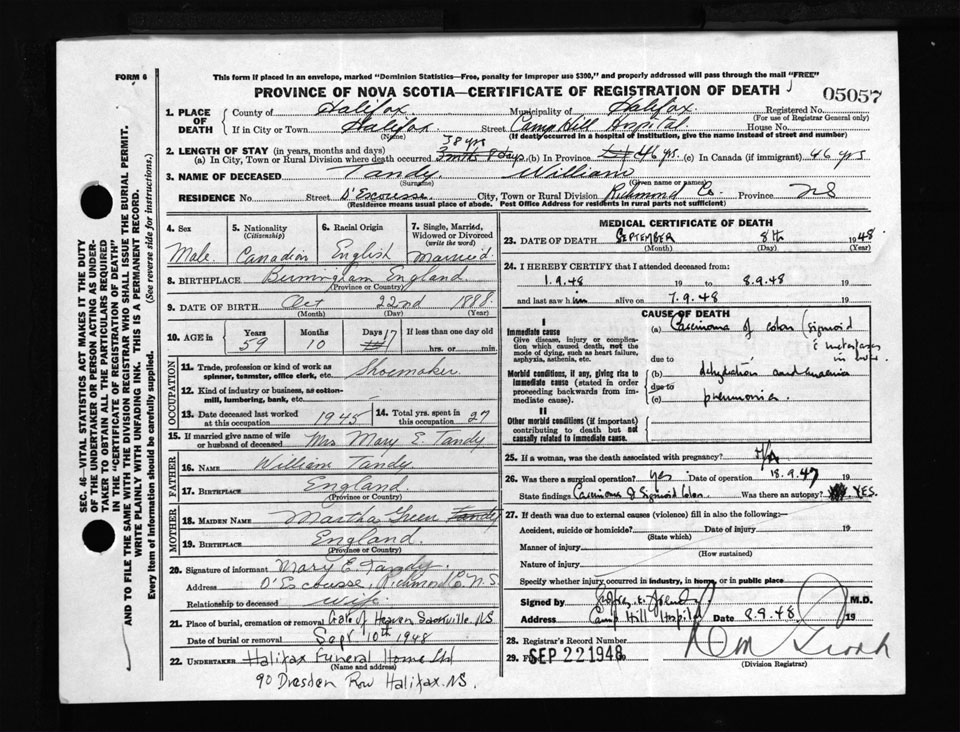 FORM 6
This form if placed in an envelope, marked "Dominion Statistics—Free, penalty for improper use $300," and properly addressed will pass through the mail "FREE"
PROVINCE OF NOVA SCOTIA—CERTIFICATE OF REGISTRATION OF DEATH
05057
1. PLACE OF DEATH
County of Halifax Municipality of Halifax Registered No.
(For use of Registrar General only)
If in City or Town Halifax Street Camp Hill Hospital House No.
(Name) (If death occurred in a hospital or institution, give the name instead of street and number)
2. LENGTH OF STAY (in years, months and days) 38 yrs
(a) In City, Town or Rural Division where death occurred 3 mths 8 days, (b) In Province 46 yrs. (c) In Canada (if immigrant) 46 yrs
3. NAME OF DECEASED Tandy William
(Surname) (Given name or names)
RESIDENCE No. Street D'Escousse City, Town or Rural Division Richmond Co. Province NS
(Residence means usual place of abode. Post Office Address for residents in rural parts not sufficient)
4. Sex
Male
5. Nationality
(Citizenship)
Canadian
6. Racial Origin
English
7. Single, Married, Widowed or Divorced
(write the word)
Married
8. BIRTHPLACE Birmingham England
(Province or Country)
9. DATE OF BIRTH Oct 22nd 1888
(Month) (Day) (Year)
10. AGE in Years Months Days If less than one day old
59 10 17 hrs. or min.
OCCUPATION
11. Trade, profession or kind of work as spinner, teamster, office clerk, etc. Shoemaker
12. Kind of industry or business, as cotton-mill, lumbering, bank, etc.
13. Date deceased last worked at this occupation 1945
14. Total yrs. spent in this occupation 27
15. If married give name of wife or husband of deceased Mrs Mary E. Tandy
FATHER
16. NAME William Tandy
17. BIRTHPLACE England
(Province or Country)
MOTHER
18. MAIDEN NAME Martha Green Tandy
19. BIRTHPLACE England.
(Province or Country)
20. Signature of informant Mary E. Tandy.
Address D'Escousse, Richmond Co. N.S.
Relationship to deceased Wife
21. Place of burial, cremation or removal Gate of Heaven Sackville, NS
Date of burial or removal Sept 10th 1948
22. UNDERTAKER Halifax Funeral Home Ltd
(Name and address)
90 Dresden Row Halifax. NS.
MEDICAL CERTIFICATE OF DEATH
23. DATE OF DEATH SEPTEMBER 8th 1948
(Month) (Day) (Year)
24. I HEREBY CERTIFY that I attended deceased from:
1.9.48 19 to 8.9.48 19
and last saw him alive on 7.9.48 19
CAUSE OF DEATH
I
Immediate cause
Give disease, injury or complication which caused death, not the mode of dying, such as heart failure, asphyxia, asthenia, etc.
(a) Carcinoma of colon (sigmoid
metastases in
due to
Morbid conditions, if any, giving rise to immediate cause (stated in order proceeding backwards from immediate cause).
(b) dehydration and
due to
(c) pneumonia
II
Other morbid conditions (if important) contributing to death but not causally related to immediate cause.
25. If a woman, was the death associated with pregnancy?
26. Was there a surgical operation? yes Date of operation 18.9.47 19
State findings Carcinoma of Sigmoid Colon. Was there an autopsy? YES.
27. If death was due to external causes (violence) fill in also the following:—
Accident, suicide or homicide? Date of injury 19
(State which)
Manner of injury
(How sustained)
Nature of injury
Specify whether injury occurred in industry, in home, or in public place
Signed by M.D.
Address Camp Hill Hospital Date 8.9.48 19
28. Registrar's Record Number
29. Filed SEP 22 1948
(Division Registrar)
SEC. 46—VITAL STATISTICS ACT MAKES IT THE DUTY OF THE UNDERTAKER OR PERSON ACTING AS UNDERTAKER TO OBTAIN ALL THE PARTICULARS REQUIRED IN THE "CERTIFICATE OF REGISTRATION OF DEATH"
AND TO FILE THE SAME WITH THE DIVISION REGISTRAR WHO SHALL ISSUE THE BURIAL PERMIT.
WRITE PLAINLY WITH UNFADING INK. THIS IS A PERMANENT RECORD.
Every item of information should be carefully supplied. (See reverse side for instructions.)